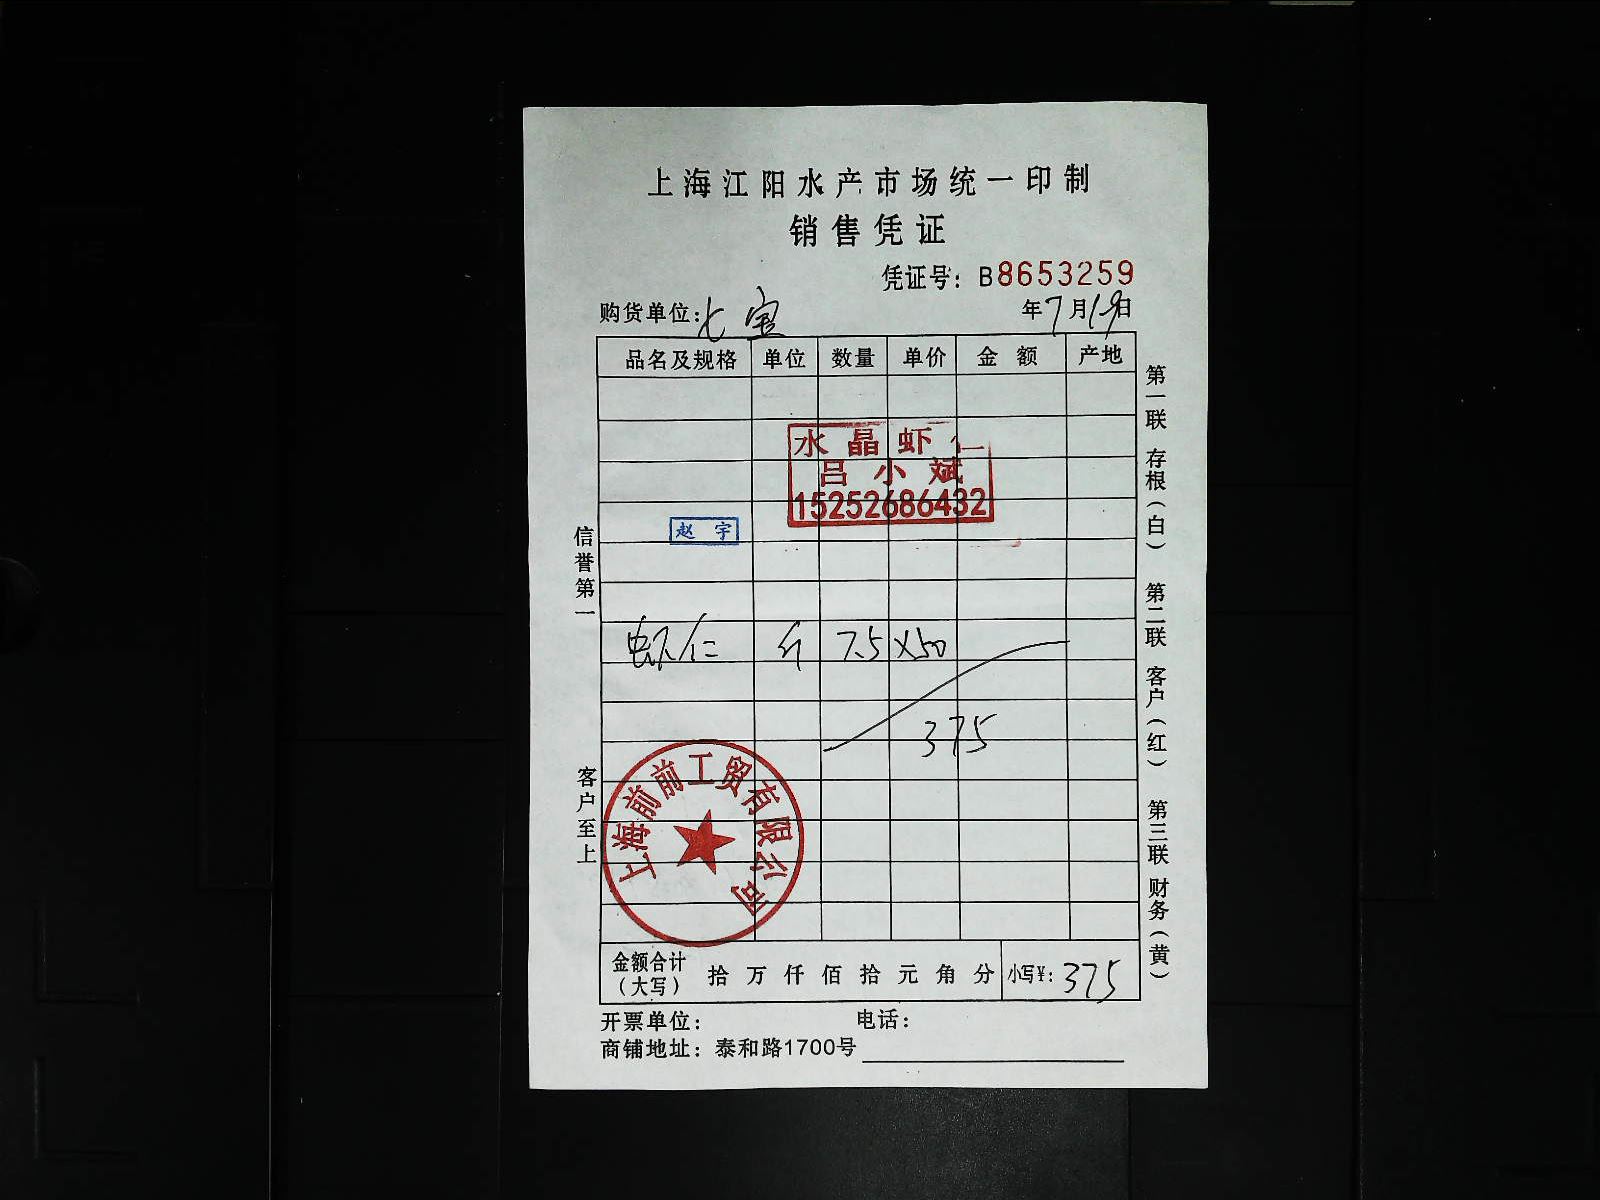 上海江阳水产市场统一印制
销售凭证
凭证号：B8653259
购货单位：七宝 年7月19日
品名及规格 单位 数量 单价 金额 产地
水晶虾仁
吕小斌
15252686432
赵宇
虾仁 斤 7.5 X50
375
上海前前工贸有限公司
金额合计（大写） 拾万仟佰拾元角分 小写¥：375
开票单位： 电话：
商铺地址：泰和路1700号
信誉第一
客户至上
第一联 存根（白） 第二联 客户（红） 第三联 财务（黄）